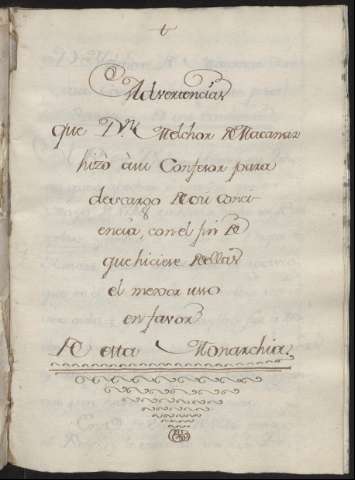 Advertencias
que Dn. Melchor de Macanaz
hizò à su Confesor para
descargo de su conci-
encia, con el fin de
que hiciese de ellas
el mexor uso
en favor
de esta Monarchia.